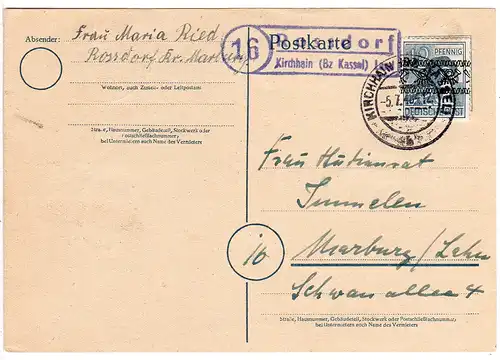 Absender: Frau Maria Ried
Rossdorf Kr. Marburg
Wohnort, auch Zustell- oder Leitpostamt
Straße, Hausnummer, Gebäudeteil, Stockwerk oder
Postschließfachnummer;
bei Untermietern auch Name des Vermieters
16
Postkarte
Rossdorf
Kirchhain (Bz Kassel) Land
PFENNIG
DEUTSCHE POST
KIRCHHAIN
-5.7.48
Frau Hutienrat
Immelen
16
Marburg/Lahn
Schwanallee 4
Straße, Hausnummer, Gebäudeteil, Stockwerk oder Postschließfachnummer;
bei Untermietern auch Name des Vermieters